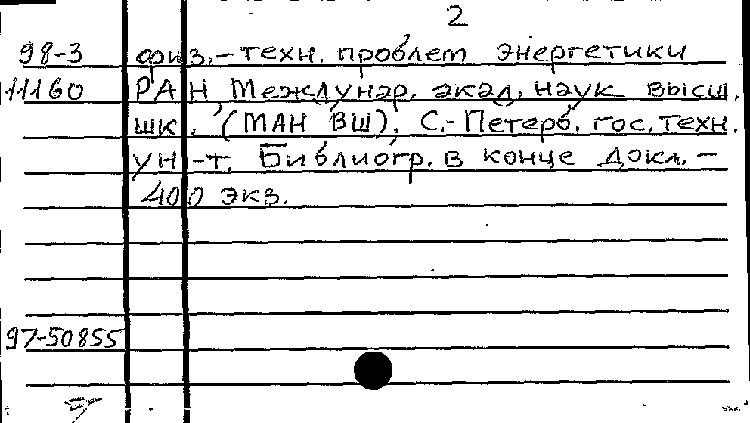 2
98-3 физ.-техн. проблем энергетики
11160 РАН, Междунар. акад. наук высш.
шк. (МАН ВШ), С.-Петерб. гос. техн.
ун-т. Библиогр. в конце докл. -
400 экз.
97-50855